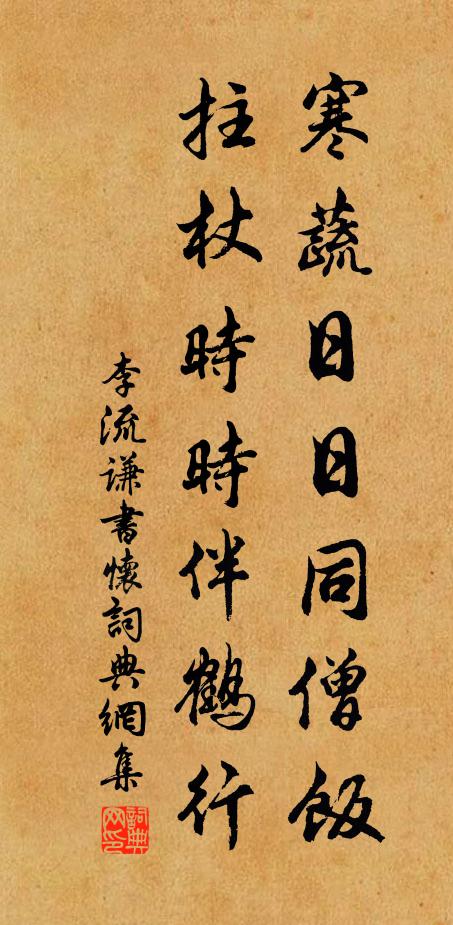 寒蔬日日同僧飯
拄杖時時伴鶴行
李流謙書懷詞典網集
詞典网印